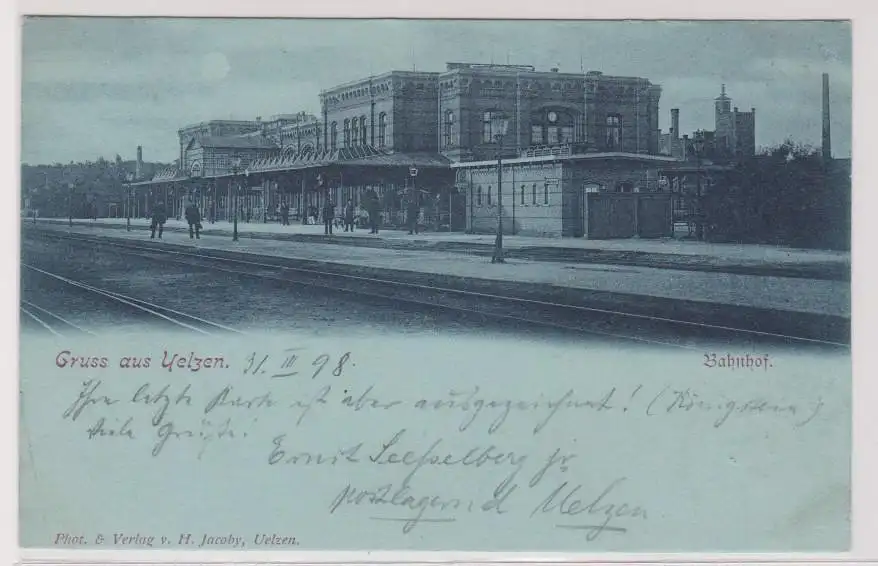 Gruss aus Uelzen. 31. III 98.
Bahnhof.
Ihre letzte Karte ist aber ausgezeichnet! (Königstein)
Viele Grüße!
Ernst jr
postlagernd Uelzen
Phot. & Verlag v. H. Jacoby, Uelzen.